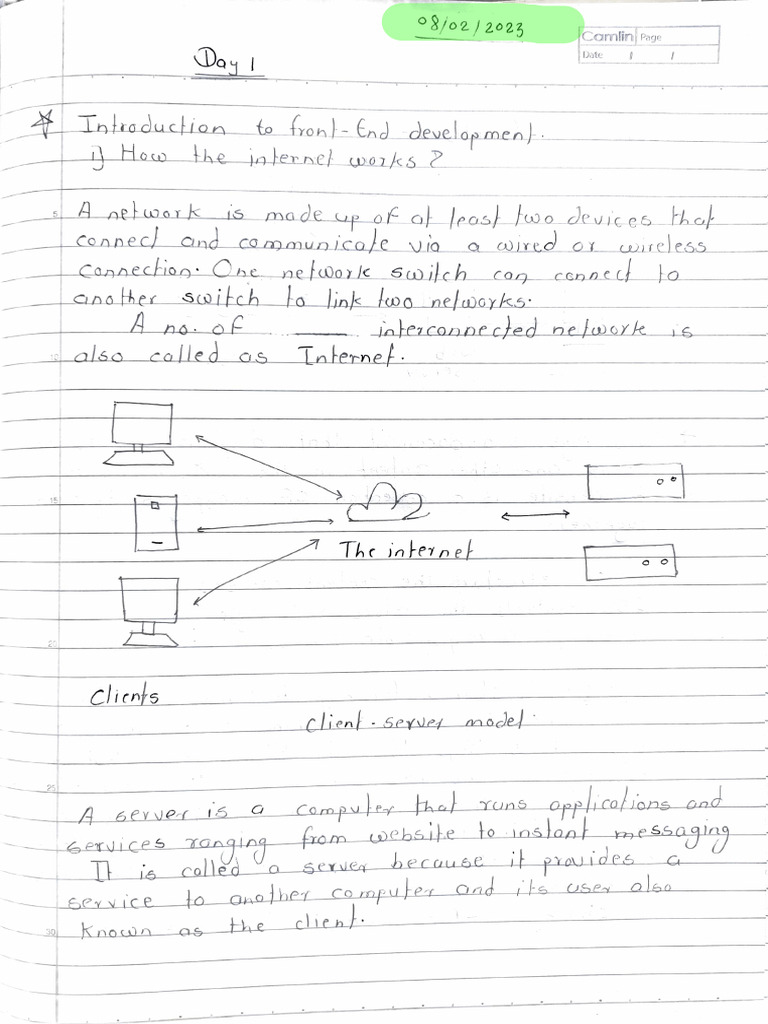 08/02/2023
Camlin Page
Date / /
Day 1
☆ Introduction to front-End development.
1) How the internet works?
5 A network is made up of at least two devices that
connect and communicate via a wired or wireless
connection. One network switch can connect to
another switch to link two networks.
A no. of ____ interconnected network is
10 also called as Internet.
15
The internet
20
Clients
client-server model.
25
A server is a computer that runs applications and
services ranging from website to instant messaging
It is called a server because it provides a
service to another computer and its user also
30 known as the client.